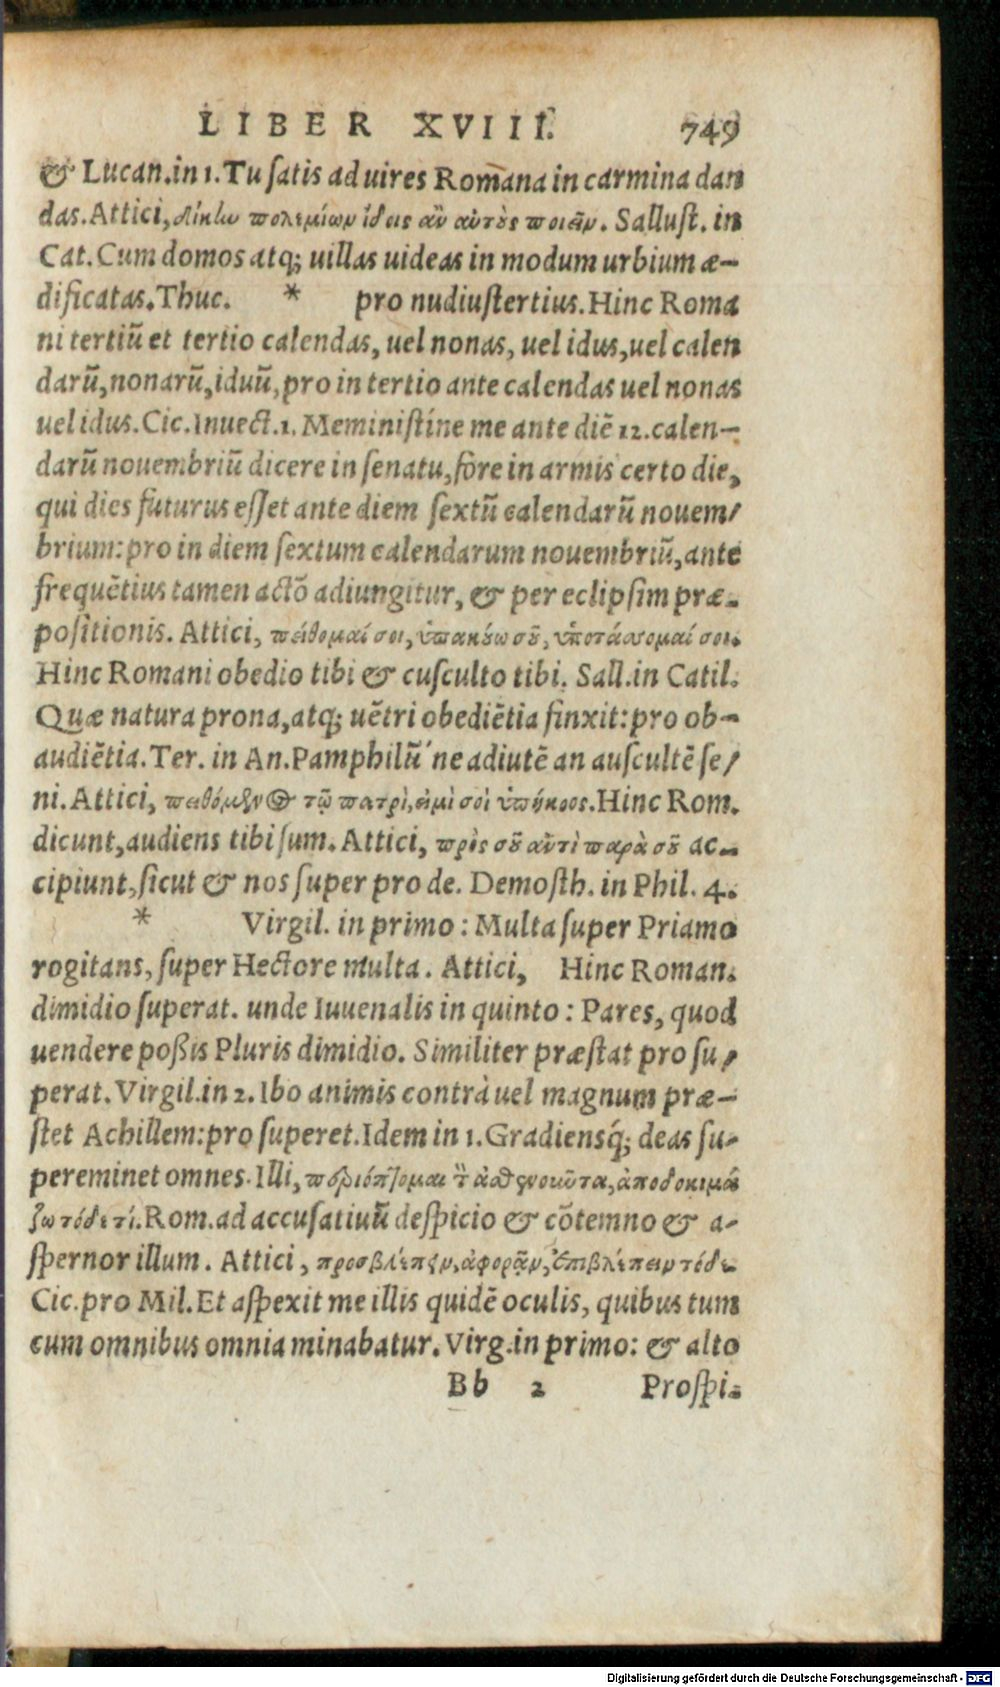 LIBER XVIII. 749
& Lucan.in 1. Tu satis ad uires Romāna in carmina dan
das. Attici, δίκην πολεμίων ἴδεις ἂν αὐτὸς ποιεῖν. Sallust. in
Cat. Cum domos atq; uillas uideas in modum urbium æ-
dificatas. Thuc. * pro nudiustertius. Hinc Roma
ni tertiũ et tertio calendas, uel nonas, uel idus, uel calen
darũ, nonarũ, iduũ, pro in tertio ante calendas uel nonas
uel idus. Cic. Inuect. 1. Meministíne me ante diẽ 12. calen-
darũ nouembriũ dicere in senatu, fore in armis certo die,
qui dies futurus esset ante diem sextũ calendarũ nouem/
brium: pro in diem sextum calendarum nouembriũ, ante
frequẽtius tamen actõ adiungitur, & per eclipsim præ-
positionis. Attici, πείθομαί σοι, ὑπακούω σοῦ, ὑποτάσσομαί σοι.
Hinc Romani obedio tibi & cusculto tibi. Sall. in Catil.
Quæ natura prona, atq; uẽtri obediẽtia finxit: pro ob-
audiẽtia. Ter. in An. Pamphilũ´ne adiutẽ an auscultẽ se/
ni. Attici, πειθόμενος τῷ πατρὶ, εἰμὶ σοὶ ὑπήκοος. Hinc Rom.
dicunt, audiens tibi sum. Attici, πρὸς σοῦ αὖτὶ παρὰ σοῦ ac-
cipiunt, sicut & nos super pro de. Demosth. in Phil. 4.
* Virgil. in primo: Multa super Priamo
rogitans, super Hectore multa. Attici, Hinc Roman.
dimidio superat. unde Iuuenalis in quinto: Pares, quod
uendere poßis Pluris dimidio. Similiter præstat pro su/
perat. Virgil. in 2. Ibo animis contrà uel magnum præ-
stet Achillem: pro superet. Idem in 1. Gradiensq́; deas su-
pereminet omnes. Illi, περιόπτομαι ἀποδοκιμά
ζω τόδε τί. Rom. ad accusatiuũ despicio & cõtemno & a-
spernor illum. Attici, προσβλέπειν, ἀφορᾷν, ἐπιβλέπειν τόδε.
Cic. pro Mil. Et aspexit me illis quidẽ oculis, quibus tum
cum omnibus omnia minabatur. Virg. in primo: & alto
Bb 2 Prospi-
Digitalisierung gefördert durch die Deutsche Forschungsgemeinschaft - DFG